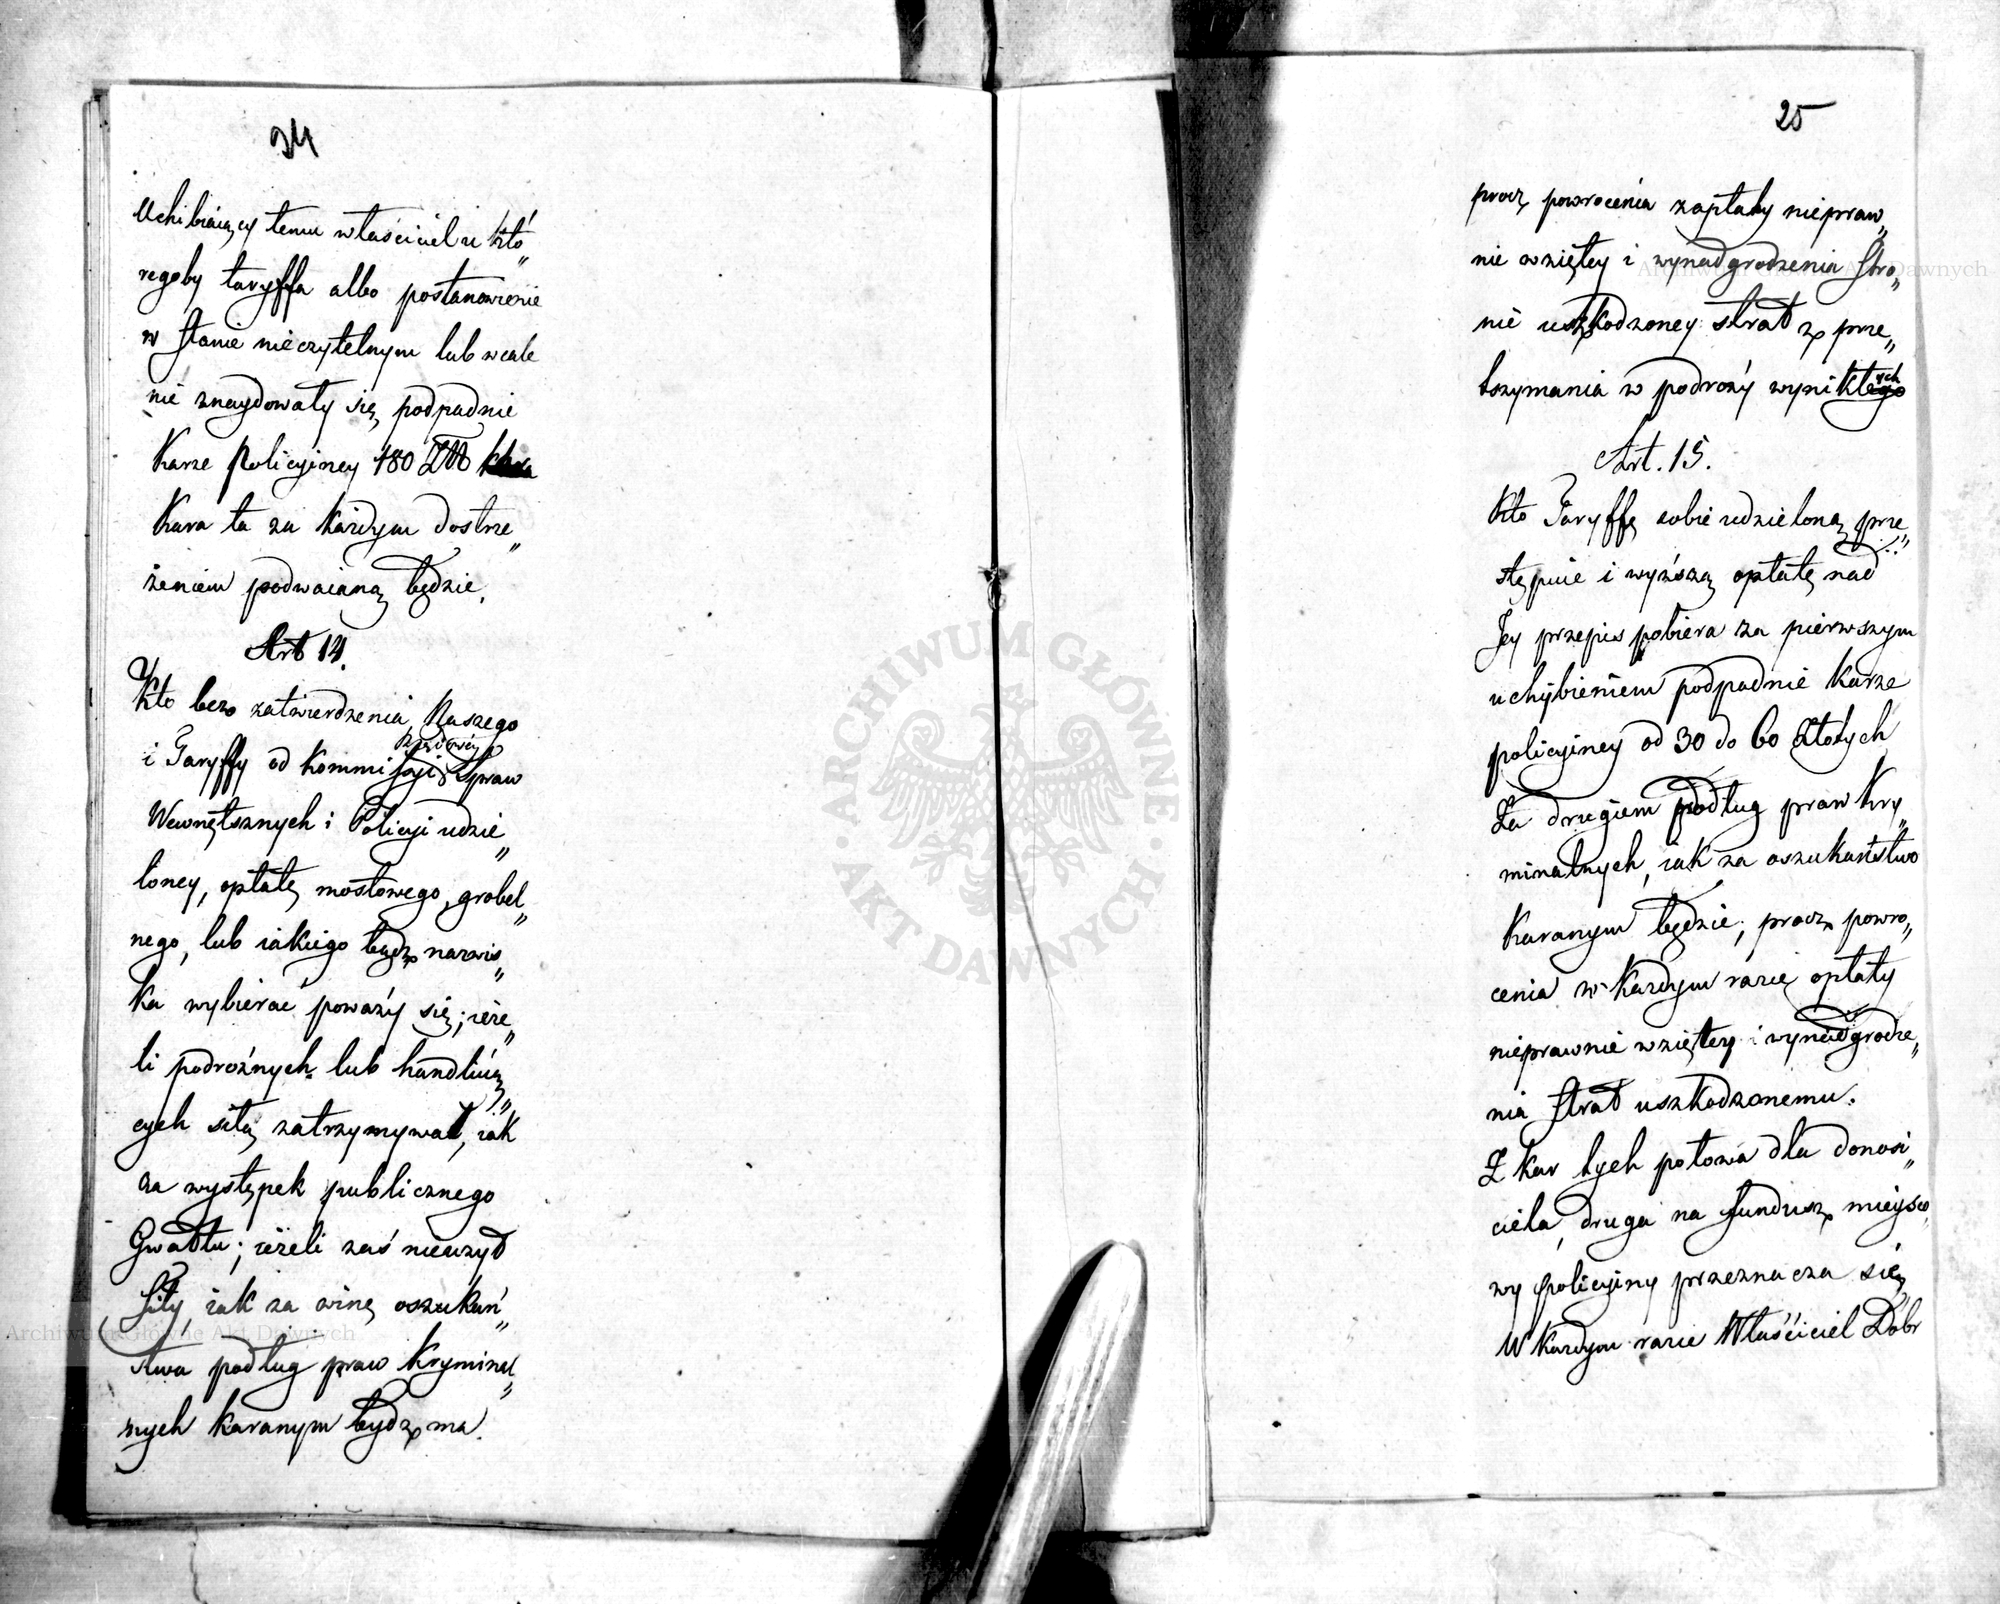 24
Uchibiaiący temu właściciel u któ„
regoby taryffa albo postanowienie
w stanie nieczytelnym lub wcale
nie znaydowały się, podpadnie
Karze Policyiney 180
Kara ta za każdym dostrze„
żeniem podwaianą będzie.
Art 14.
Kto bez zatwierdzenia Naszego
i Taryffy od Kommissyi Rządowéy Spraw
Wewnętrznych i Policyi udzie„
loney, opłatę mostowego, grobel„
nego, lub iakiego bądz nazwis„
ka wybierać poważy się; ieże„
li podróżnych lub handluią„
cych siłą zatrzymywał, iak
za występek publicznego
Gwałtu; ieżeli zaś nieużył
Siły, iak za winę oszukań„
stwa podług praw kryminal„
nych karanym bydz ma.
25
procz powrocenia zapłaty niepraw„
nie wziętey i wynadgrodzenia stro„
nie uszkodzoney strat z prze„
trzymania w podroży wynikłych
Art. 15.
Kto Taryffę sobie udzieloną prze„
stępuie i wyższą opłatę nad
Jey przepis pobiera za pierwszym
uchybieniem podpadnie karze
policyiney od 30 do 60 Złotych
Za drugiem podług praw kry„
minalnych, iak za oszukaństwo
Karanym będzie; procz powro„
cenia w każdym razie opłaty
nieprawnie wziętey i wynadgrodze„
nia strat uszkodzonemu.
Z kar tych połowa dla donosi„
ciela, druga na fundusz mieysco„
wy policyiny przeznacza się
W każdym razie Właściciel Dobr
ARCHIWUM GŁÓWNE AKT DAWNYCH
Archiwum Główne Akt Dawnych
Archiwum Główne Akt Dawnych